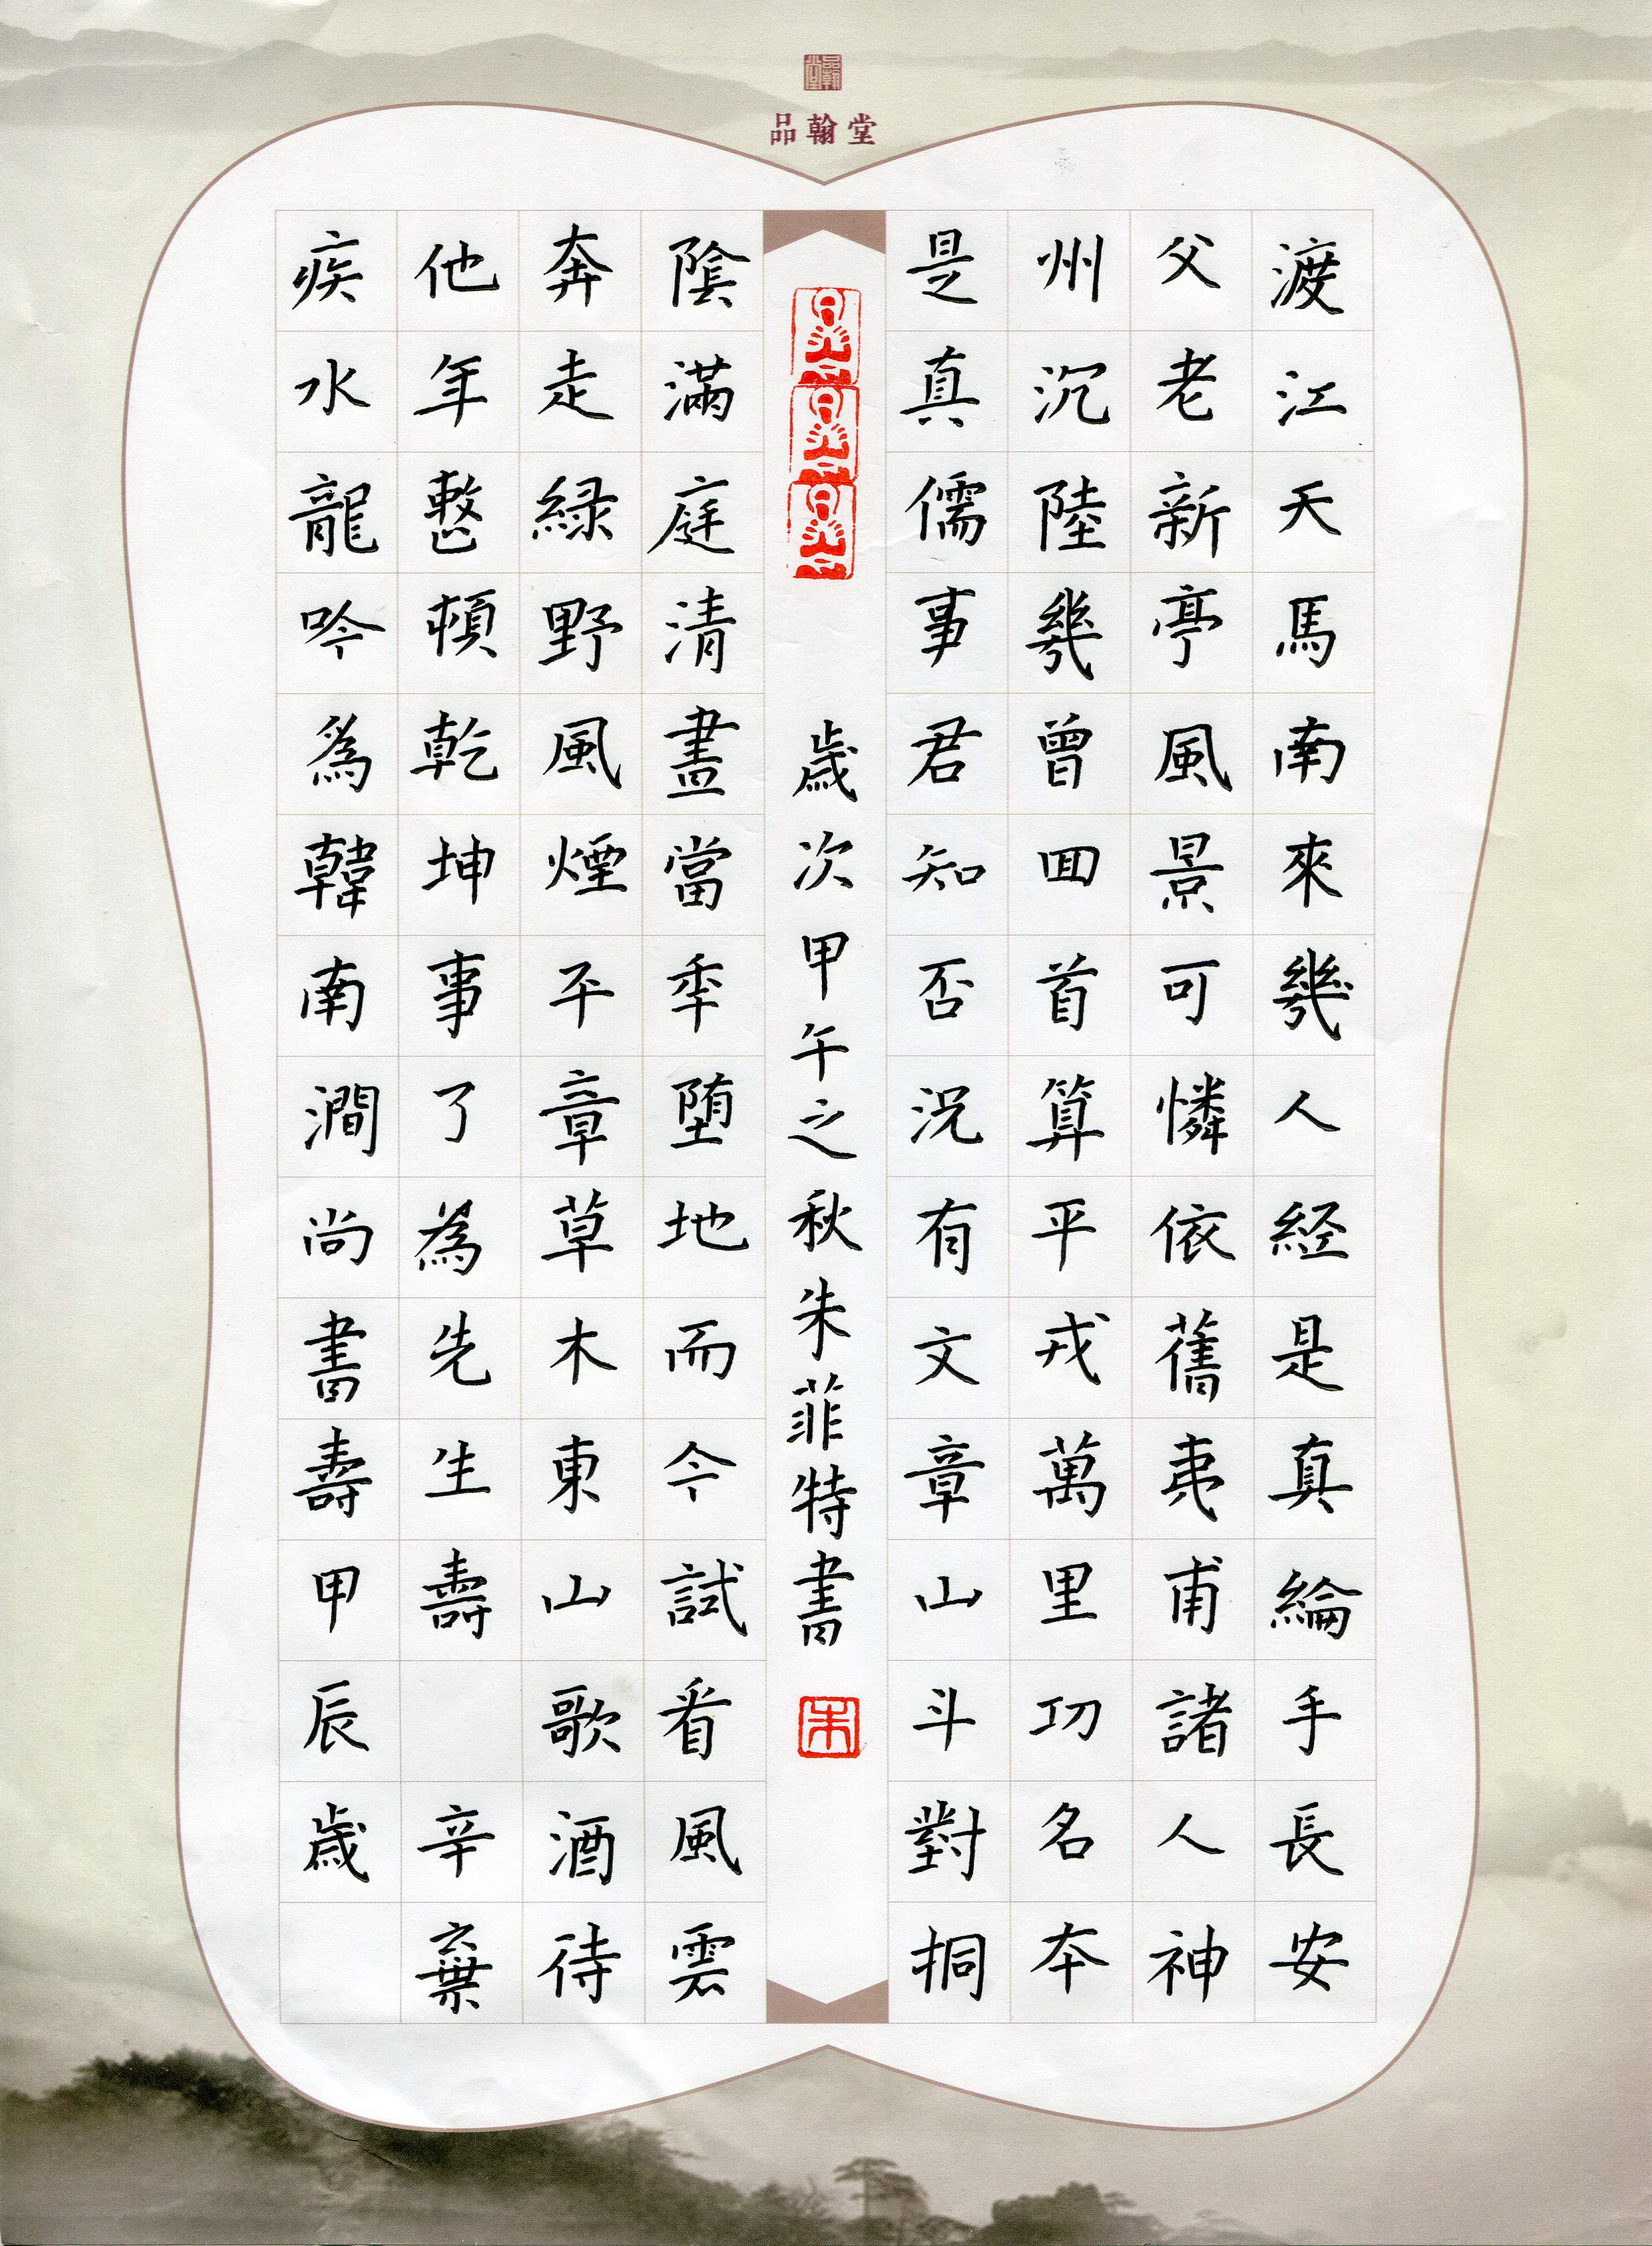 品翰堂
渡江天馬南來幾人経是真綸手長安
父老新亭風景可憐依舊夷甫諸人神
州沉陸幾曾回首算平戎萬里功名本
是真儒事君知否況有文章山斗對桐
歲次甲午之秋朱菲特書
陰滿庭清晝當年堕地而今試看風雲
奔走緑野風煙平章草木東山歌酒待
他年整頓乾坤事了為先生壽 辛棄
疾水龍吟為韓南澗尚書壽甲辰歲